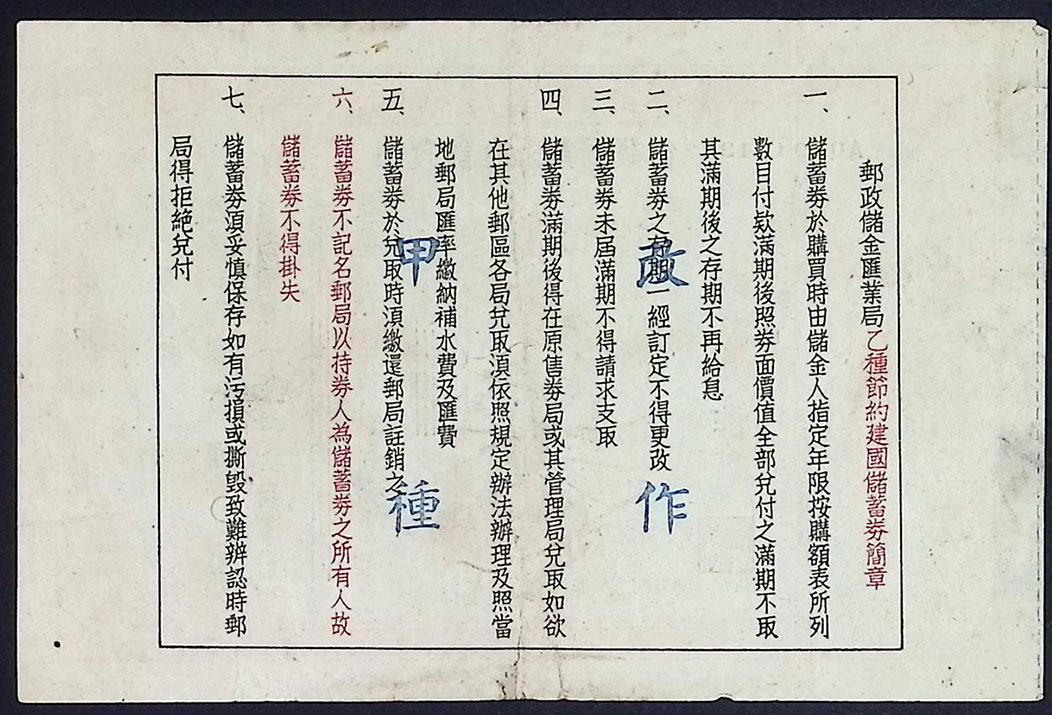 郵政儲金匯業局乙種節約建國儲蓄劵簡章
一、儲蓄劵於購買時由儲金人指定年限按購額表所列
數目付款滿期後照劵面價值全部兌付之滿期不取
其滿期後之存期不再給息
二、儲蓄劵之存期一經訂定不得更改
三、儲蓄劵未屆滿期不得請求支取
四、儲蓄劵滿期後得在原售劵局或其管理局兌取如欲
在其他郵區各局兌取湏依照規定辦法辦理及照當
地郵局匯率繳納補水費及匯費
五、儲蓄劵於兌取時湏繳還郵局註銷之
六、儲蓄劵不記名郵局以持劵人為儲蓄劵之所有人故
儲蓄劵不得掛失
七、儲蓄劵湏妥慎保存如有污損或撕毀致難辨認時郵
局得拒絕兌付
改作
甲種